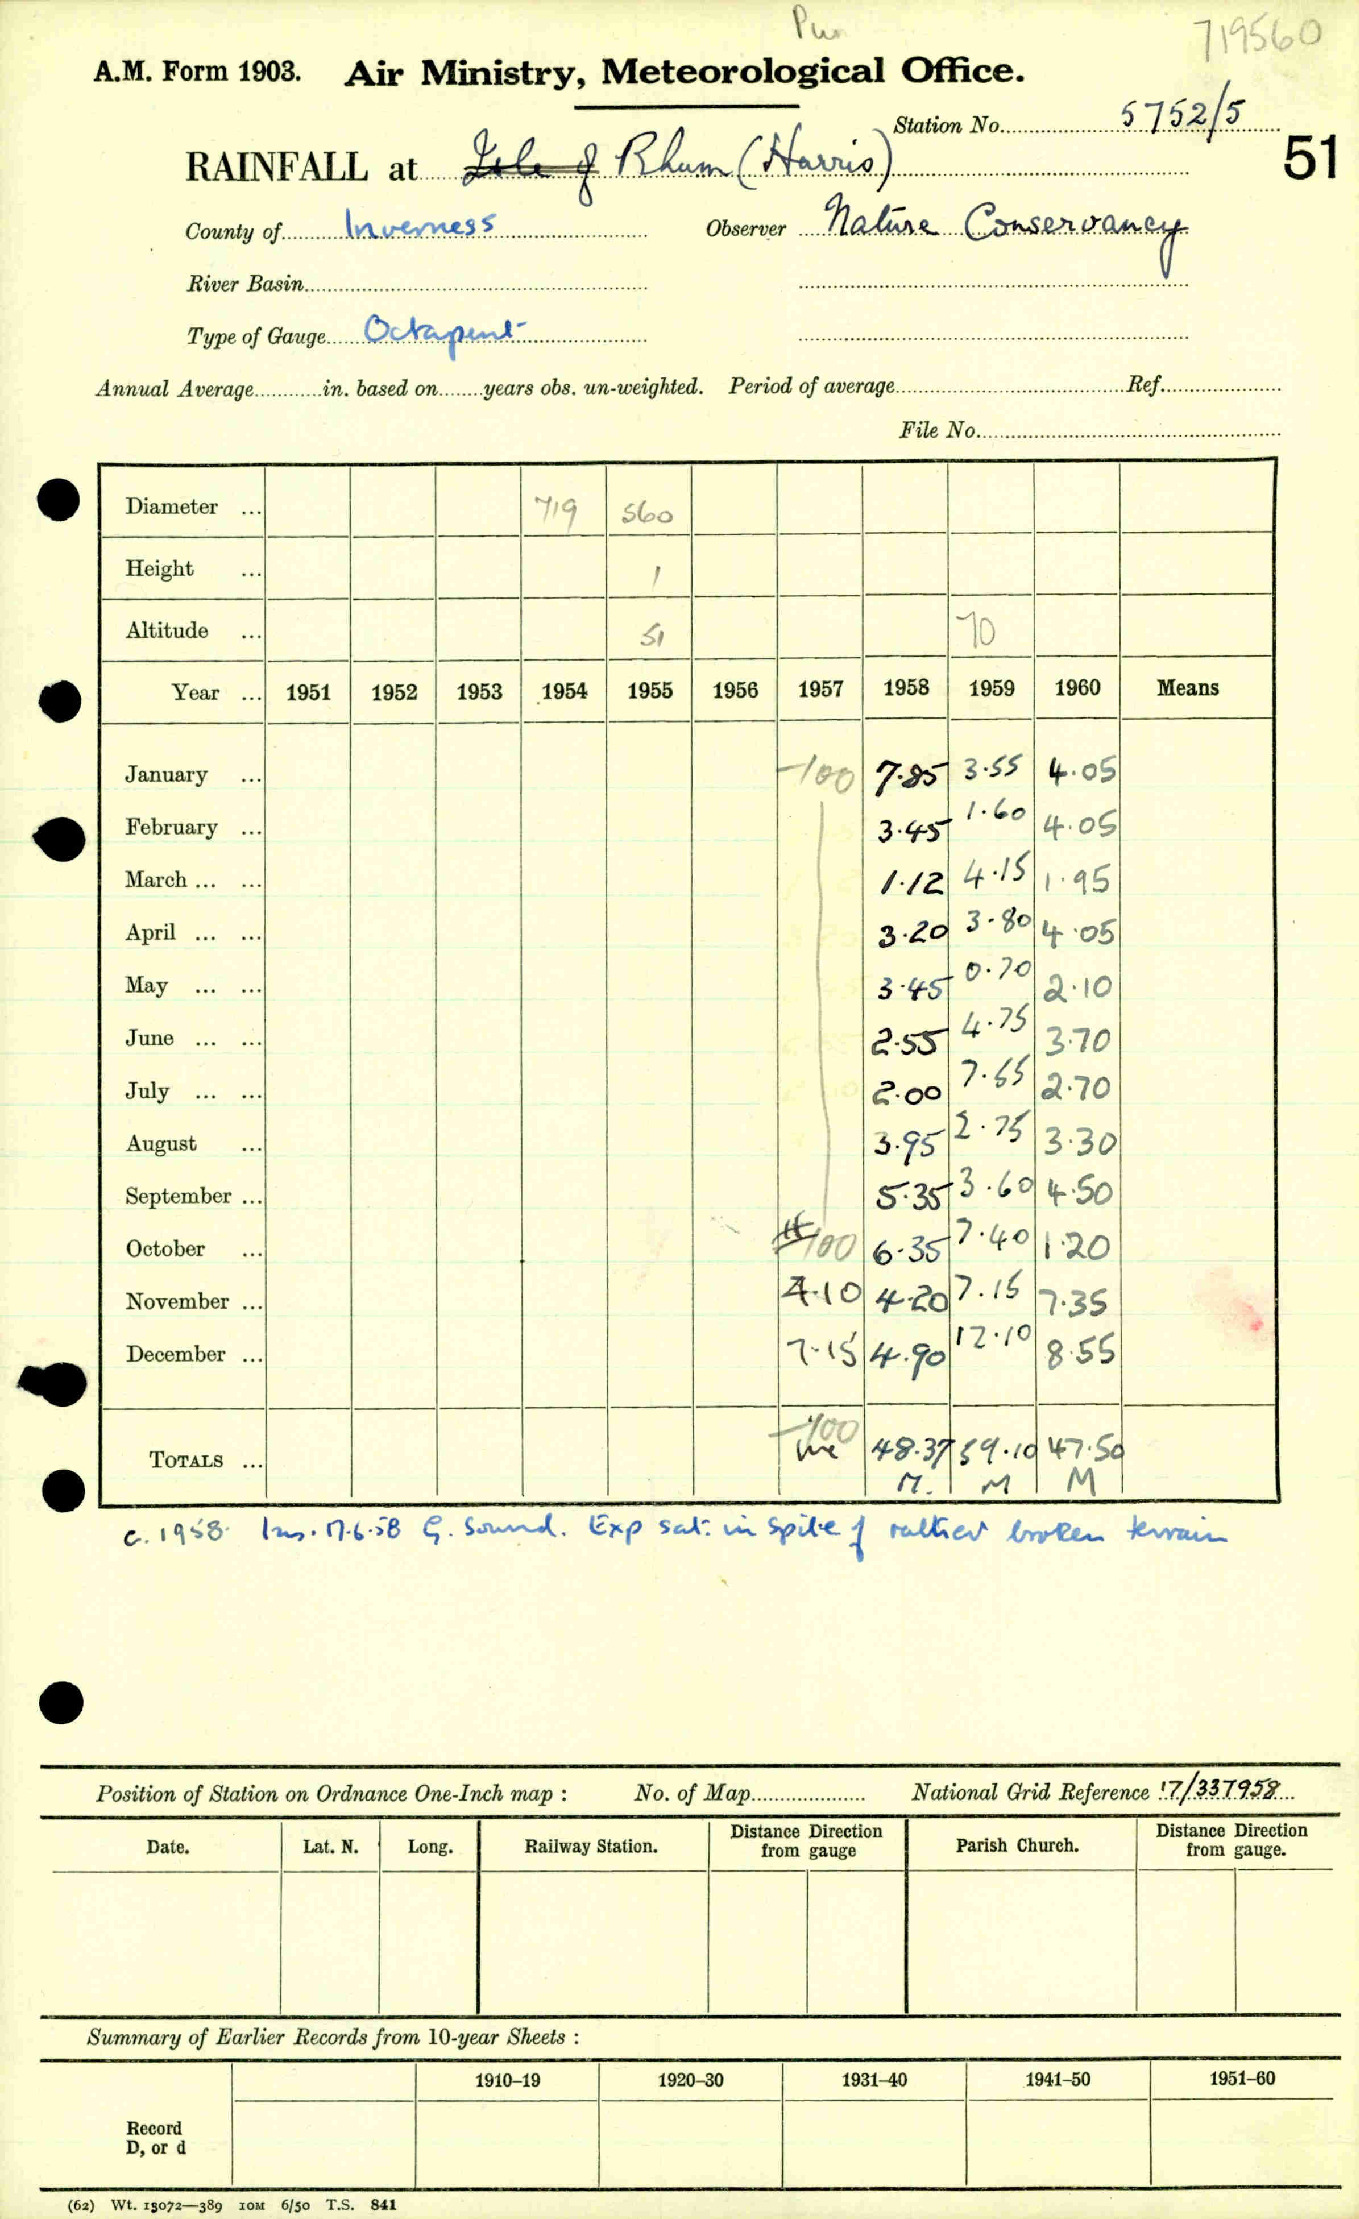 Pwr 719560
A.M. Form 1903. Air Ministry, Meteorological Office.
Station No. 5752/5
51
RAINFALL at Isle of Rhum (Harris)
County of Inverness Observer Nature Conservancy
River Basin
Type of Gauge Octapent
Annual Average in. based on years obs. un-weighted. Period of average Ref.
File No.
Diameter ... 719 560
Height ... 1
Altitude ... 51 70
Year ... 1951 1952 1953 1954 1955 1956 1957 1958 1959 1960 Means
January ... -100 7.85 3.55 4.05
February ... 3.45 1.60 4.05
March ... ... 1.12 4.15 1.95
April ... ... 3.20 3.80 4.05
May ... ... 3.45 0.70 2.10
June ... ... 2.55 4.75 3.70
July ... ... 2.00 7.55 2.70
August ... 3.95 2.75 3.30
September ... 5.35 3.60 4.50
October ... 100 6.35 7.40 1.20
November ... 7.10 4.20 7.15 7.35
December ... 7.15 4.90 12.10 8.55
TOTALS ... -100 48.37 59.10 47.50
M. M M
c. 1958. Ins. 17.6.58 G. Sound. Exp sat. in spite of rather broken terrain
Position of Station on Ordnance One-Inch map : No. of Map National Grid Reference 17/337958
Date. Lat. N. Long. Railway Station. Distance Direction from gauge Parish Church. Distance Direction from gauge.
Summary of Earlier Records from 10-year Sheets :
1910–19 1920–30 1931–40 1941–50 1951–60
Record
D, or d
(62) Wt. 15072—389 10M 6/50 T.S. 841